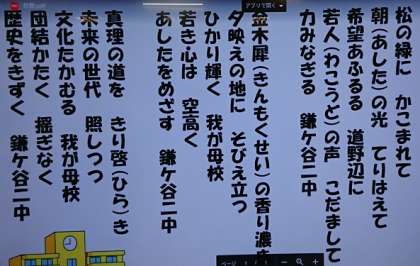 アプリで開く
松の緑に かこまれて
朝(あした)の光 てりはえて
希望あふるる 道野辺に
若人(わこうど)の声 こだまして
力みなぎる 鎌ケ谷二中
金木犀(きんもくせい)の香り濃
夕映えの地に そびえ立つ
ひかり輝く 我が母校
若き心は 空高く
あしたをめざす 鎌ケ谷二中
真理の道を きり啓(ひら)き
未来の世代 照しつつ
文化たかむる 我が母校
団結かたく 揺ぎなく
歴史をきずく 鎌ケ谷二中
ページ 1 / 1